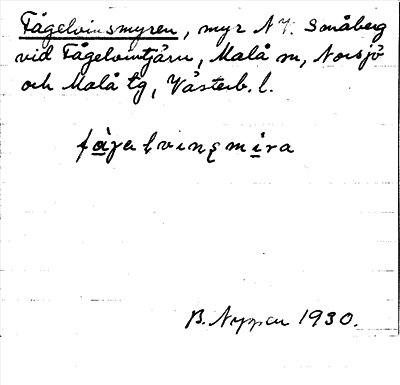 Fågelvinsmyren, myr N V. Småberg
vid Fågelvintjärn, Malå sn, Norsjö
och Malå tg, Västerb. l.
fòɣelvinsmira
B. Nyman 1930.